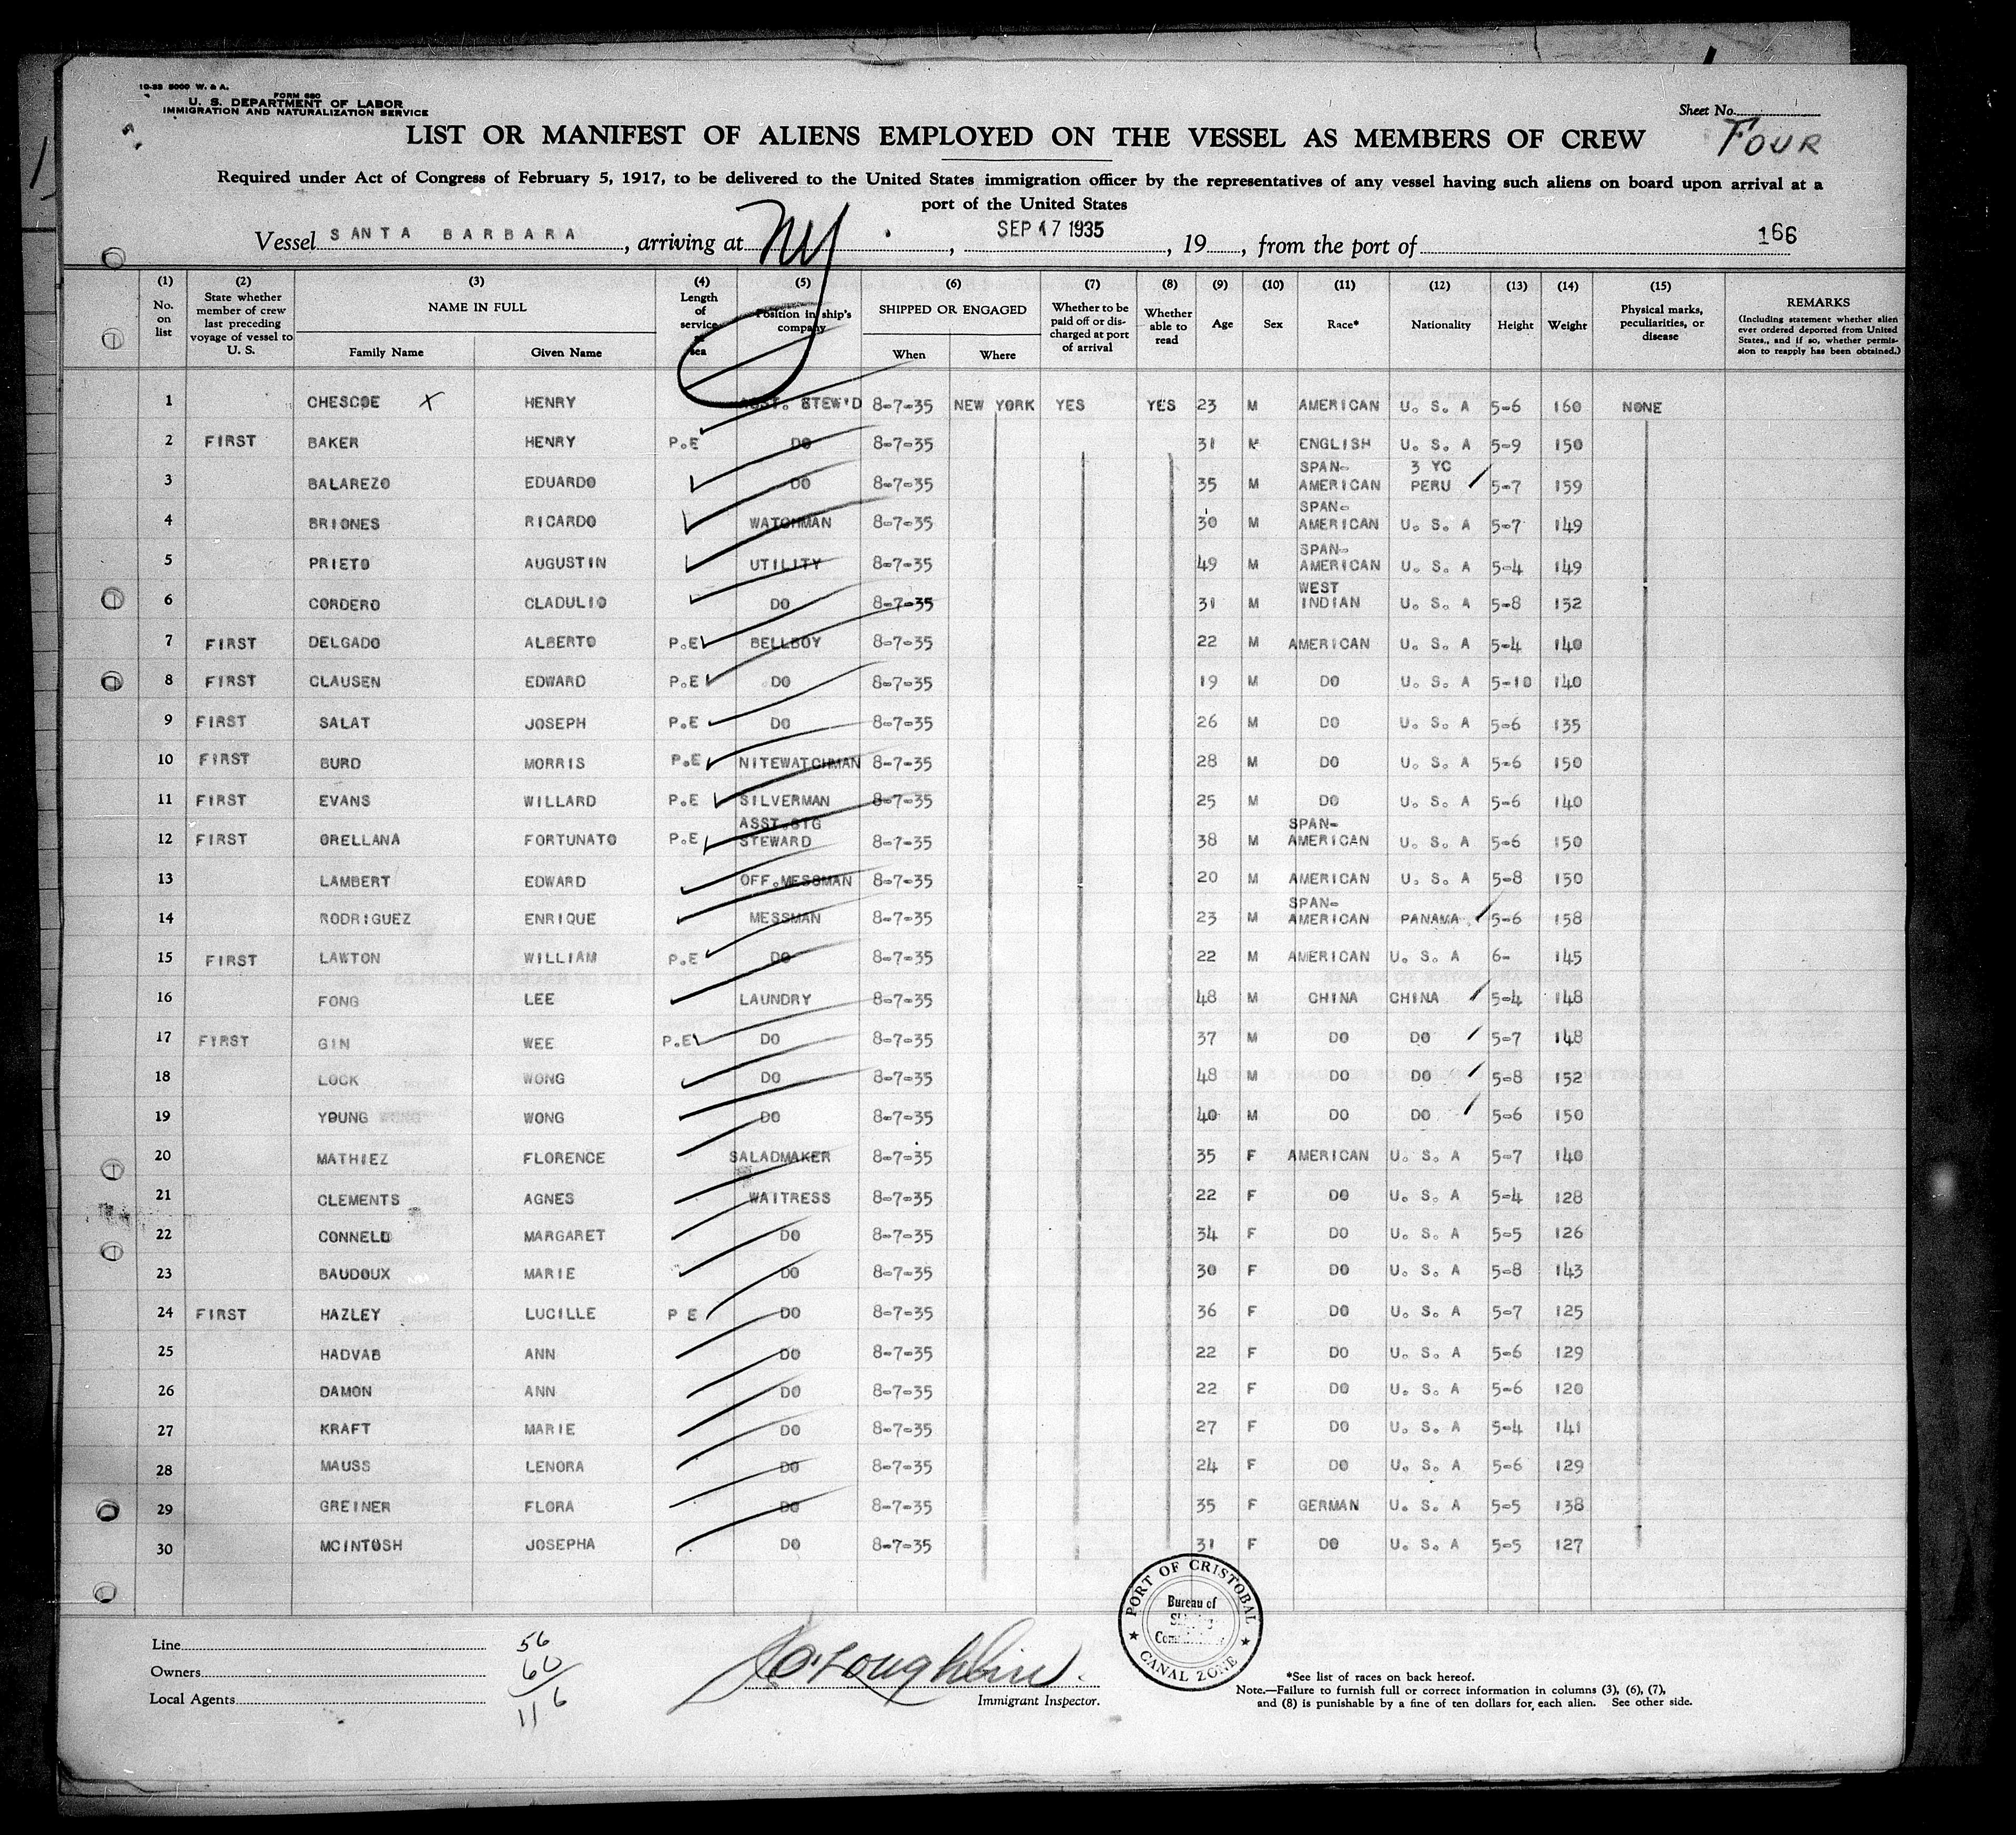 10-33 5000 W. & A.
FORM 680
U. S. DEPARTMENT OF LABOR
IMMIGRATION AND NATURALIZATION SERVICE
Sheet No.
FOUR
LIST OR MANIFEST OF ALIENS EMPLOYED ON THE VESSEL AS MEMBERS OF CREW
Required under Act of Congress of February 5, 1917, to be delivered to the United States immigration officer by the representatives of any vessel having such aliens on board upon arrival at a
port of the United States
Vessel SANTA BARBARA, arriving at NY, SEP 17 1935, 19, from the port of 166
(1) No. on list (2) State whether member of crew last preceding voyage of vessel to U. S. (3) NAME IN FULL Family Name Given Name (4) Length of service at sea (5) Position in ship's company (6) SHIPPED OR ENGAGED When Where (7) Whether to be paid off or discharged at port of arrival (8) Whether able to read (9) Age (10) Sex (11) Race* (12) Nationality (13) Height (14) Weight (15) Physical marks, peculiarities, or disease REMARKS (Including statement whether alien ever ordered deported from United States., and if so, whether permission to reapply has been obtained.)
1 CHESCOE X HENRY ASST. STEW'D 8-7-35 NEW YORK YES YES 23 M AMERICAN U. S. A 5-6 160 NONE
2 FIRST BAKER HENRY P.E DO 8-7-35 31 M ENGLISH U. S. A 5-9 150
3 BALAREZO EDUARDO DO 8-7-35 35 M SPAN-AMERICAN 3 YC PERU 5-7 159
4 BRIONES RICARDO WATCHMAN 8-7-35 30 M SPAN-AMERICAN U. S. A 5-7 149
5 PRIETO AUGUSTIN UTILITY 8-7-35 49 M SPAN-AMERICAN U. S. A 5-4 149
6 CORDERO CLADULIO DO 8-7-35 31 M WEST INDIAN U. S. A 5-8 152
7 FIRST DELGADO ALBERTO P.E BELLBOY 8-7-35 22 M AMERICAN U. S. A 5-4 140
8 FIRST CLAUSEN EDWARD P.E DO 8-7-35 19 M DO U. S. A 5-10 140
9 FIRST SALAT JOSEPH P.E DO 8-7-35 26 M DO U. S. A 5-6 135
10 FIRST BURD MORRIS P.E NITEWATCHMAN 8-7-35 28 M DO U. S. A 5-6 150
11 FIRST EVANS WILLARD P.E SILVERMAN 8-7-35 25 M DO U. S. A 5-6 140
12 FIRST ORELLANA FORTUNATO P.E ASST.STG STEWARD 8-7-35 38 M SPAN-AMERICAN U. S. A 5-6 150
13 LAMBERT EDWARD OFF.MESSMAN 8-7-35 20 M AMERICAN U. S. A 5-8 150
14 RODRIGUEZ ENRIQUE MESSMAN 8-7-35 23 M SPAN-AMERICAN PANAMA 5-6 158
15 FIRST LAWTON WILLIAM P.E DO 8-7-35 22 M AMERICAN U. S. A 6- 145
16 FONG LEE LAUNDRY 8-7-35 48 M CHINA CHINA 5-4 148
17 FIRST GIN WEE P.E DO 8-7-35 37 M DO DO 5-7 148
18 LOCK WONG DO 8-7-35 48 M DO DO 5-8 152
19 YOUNG WONG DO 8-7-35 40 M DO DO 5-6 150
20 MATHIEZ FLORENCE SALADMAKER 8-7-35 35 F AMERICAN U. S. A 5-7 140
21 CLEMENTS AGNES WAITRESS 8-7-35 22 F DO U. S. A 5-4 128
22 CONNELL MARGARET DO 8-7-35 34 F DO U. S. A 5-5 126
23 BAUDOUX MARIE DO 8-7-35 30 F DO U. S. A 5-8 143
24 FIRST HAZLEY LUCILLE P E DO 8-7-35 36 F DO U. S. A 5-7 125
25 HADVAB ANN DO 8-7-35 22 F DO U. S. A 5-6 129
26 DAMON ANN DO 8-7-35 22 F DO U. S. A 5-6 120
27 KRAFT MARIE DO 8-7-35 27 F DO U. S. A 5-4 141
28 MAUSS LENORA DO 8-7-35 24 F DO U. S. A 5-6 129
29 GREINER FLORA DO 8-7-35 35 F GERMAN U. S. A 5-5 138
30 MCINTOSH JOSEPHA DO 8-7-35 31 F DO U. S. A 5-5 127
PORT OF CRISTOBAL
Bureau of
CANAL ZONE
Line
Owners
Local Agents
56
60
116
O'Loughlin
Immigrant Inspector.
*See list of races on back hereof.
Note.—Failure to furnish full or correct information in columns (3), (6), (7),
and (8) is punishable by a fine of ten dollars for each alien. See other side.